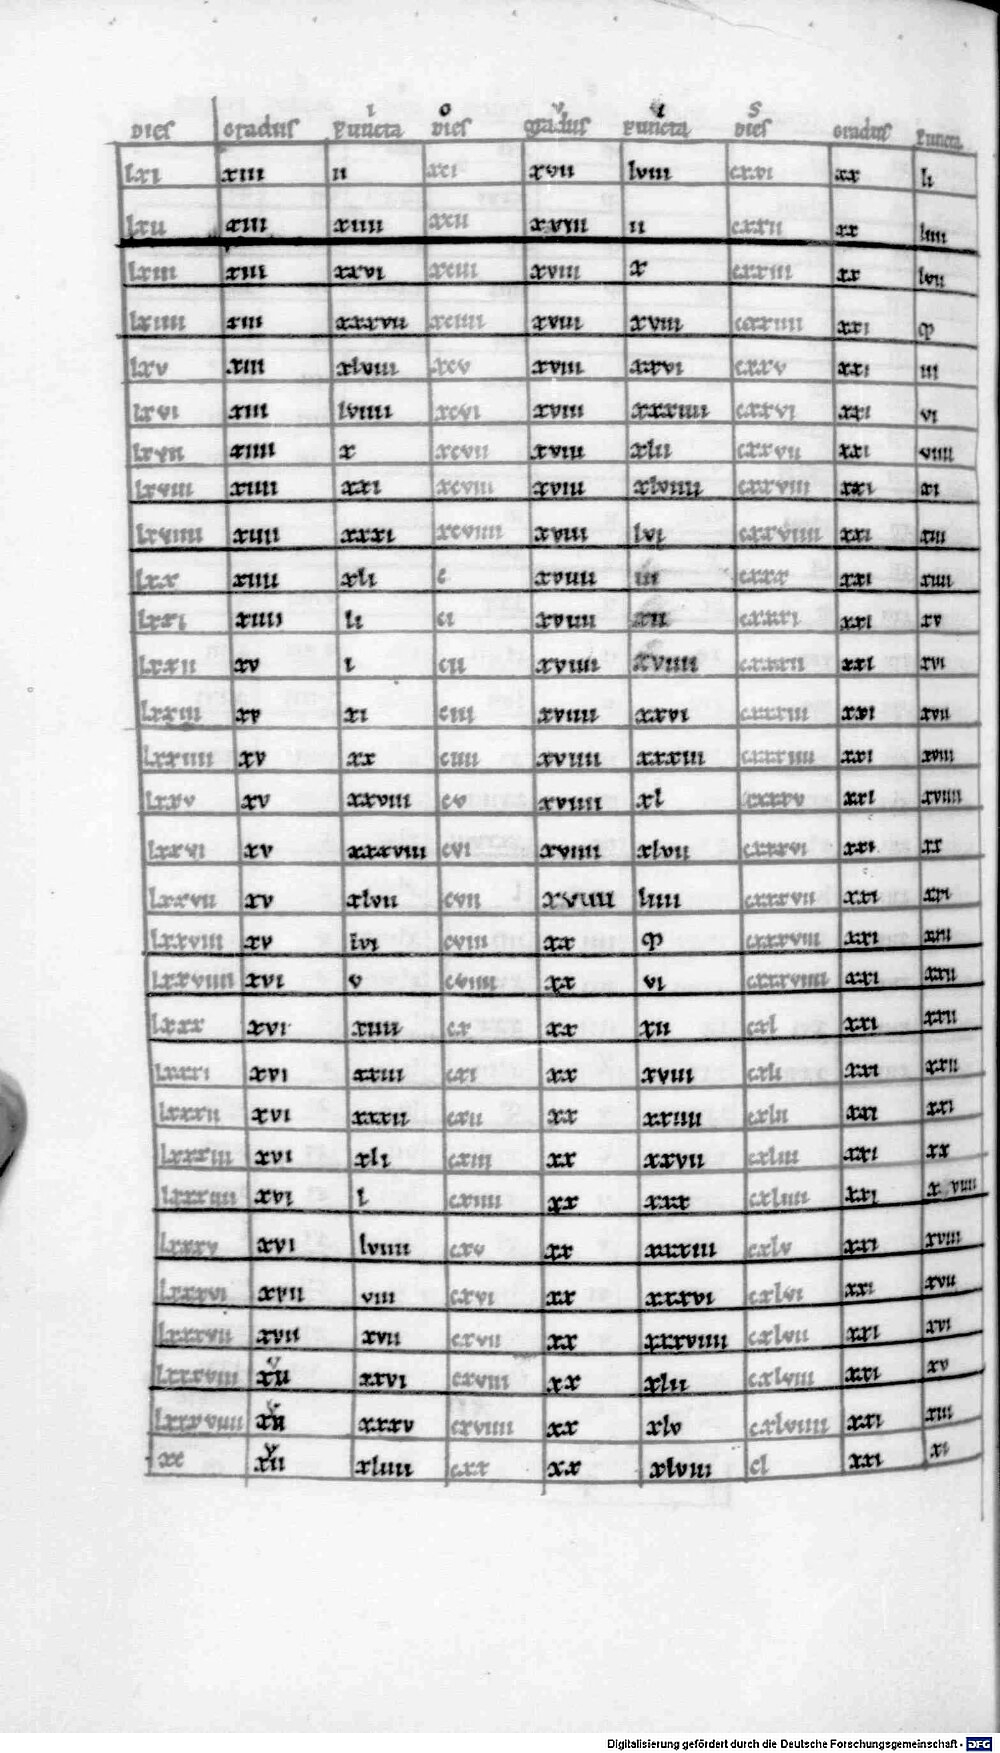 I O V I S
Dies Gradus Puncta Dies Gradus Puncta Dies Gradus Puncta
lxi xiii ii xci xvii lviii cxxi xx li
lxii xiii xiiii xcii xviii ii cxxii xx liiii
lxiii xiii xxvi xciii xviii x cxxiii xx lvii
lxiiii xiii xxxvii xciiii xviii xviii cxxiiii xxi φ
lxv xiii xlviii xcv xviii xxvi cxxv xxi iii
lxvi xiii lviiii xcvi xviii xxxiiii cxxvi xxi vi
lxvii xiiii x xcvii xviii xlii cxxvii xxi viiii
lxviii xiiii xxi xcviii xviii xlviiii cxxviii xxi xi
lxviiii xiiii xxxi xcviiii xviii lvi cxxviiii xxi xiii
lxx xiiii xli c xviiii iii cxxx xxi xiiii
lxxi xiiii li ci xviiii xii cxxxi xxi xv
lxxii xv i cii xviiii xviiii cxxxii xxi xvi
lxxiii xv xi ciii xviiii xxvi cxxxiii xxi xvii
lxxiiii xv xx ciiii xviiii xxxiii cxxxiiii xxi xviii
lxxv xv xxviiii cv xviiii xl cxxxv xxi xviiii
lxxvi xv xxxviii cvi xviiii xlvii cxxxvi xxi xx
lxxvii xv xlvii cvii xviiii liiii cxxxvii xxi xxi
lxxviii xv lvi cviii xx φ cxxxviii xxi xxii
lxxviiii xvi v cviiii xx vi cxxxviiii xxi xxii
lxxx xvi xiiii cx xx xii cxl xxi xxii
lxxxi xvi xxiii cxi xx xviii cxli xxi xxii
lxxxii xvi xxxii cxii xx xxiiii cxlii xxi xxi
lxxxiii xvi xli cxiii xx xxvii cxliii xxi xx
lxxxiiii xvi l cxiiii xx xxx cxliiii xxi xviiii
lxxxv xvi lviiii cxv xx xxxiii cxlv xxi xviii
lxxxvi xvii viii cxvi xx xxxvi cxlvi xxi xvii
lxxxvii xvii xvii cxvii xx xxxviiii cxlvii xxi xvi
lxxxviii xvii xxvi cxviii xx xlii cxlviii xxi xv
lxxxviiii xvii xxxv cxviiii xx xlv cxlviiii xxi xiii
xc xvii xliiii cxx xx xlviii cl xxi xi
Digitalisierung gefördert durch die Deutsche Forschungsgemeinschaft - DFG